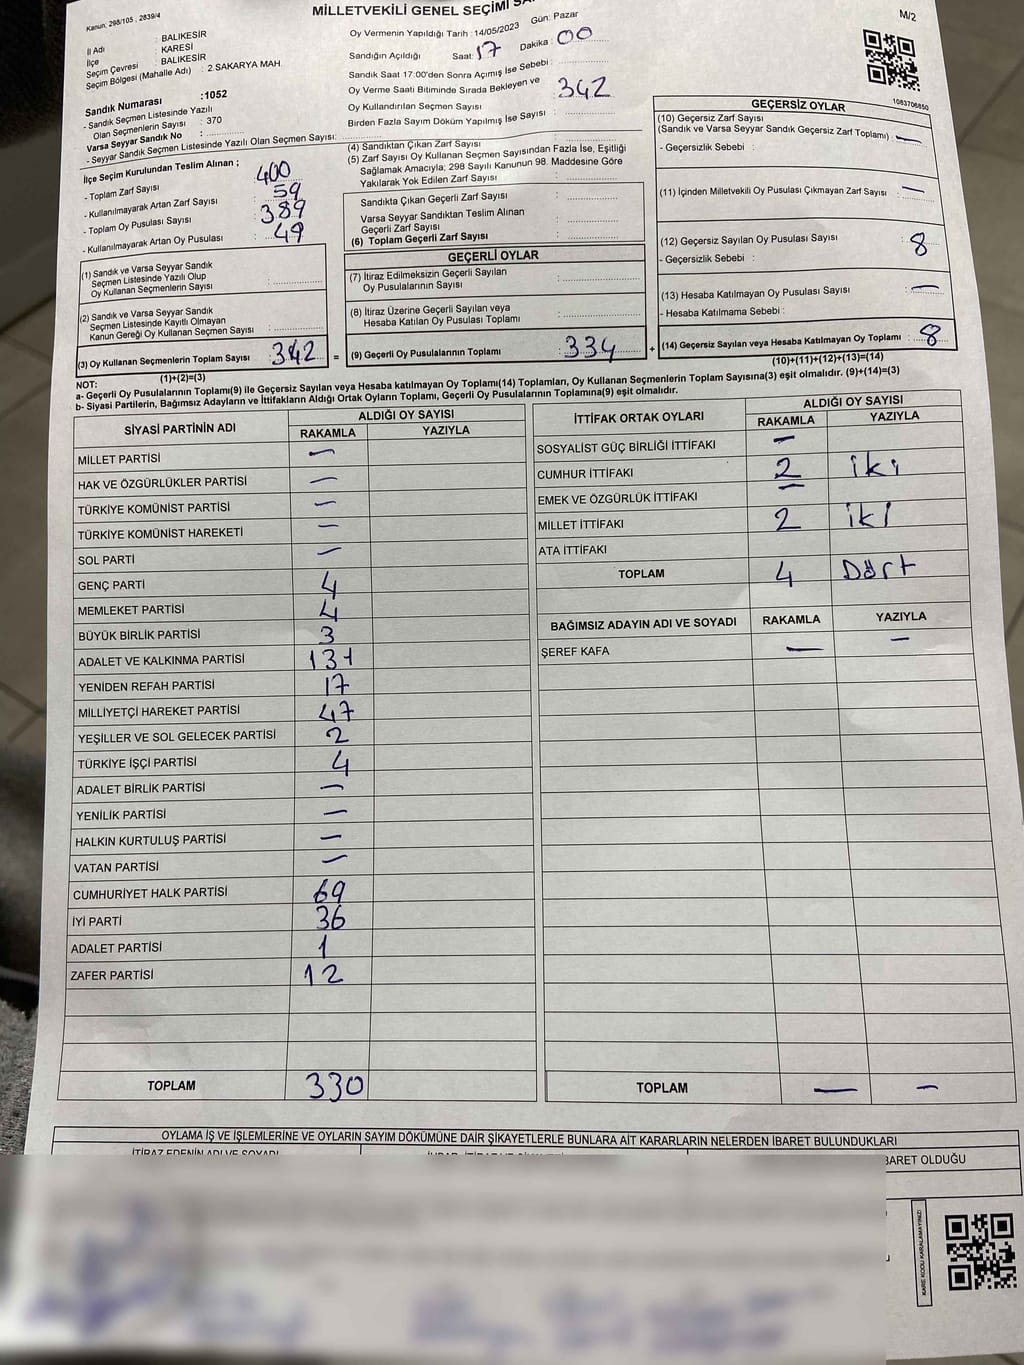 Kanun: 298/105 , 2839/4
MİLLETVEKİLİ GENEL SEÇİMİ
M/2
İl Adı : BALIKESİR
İlçe : KARESİ
Seçim Çevresi : BALIKESİR
Seçim Bölgesi (Mahalle Adı) : 2 SAKARYA MAH.
Sandık Numarası :1052
- Sandık Seçmen Listesinde Yazılı
Olan Seçmenlerin Sayısı : 370
Varsa Seyyar Sandık No :
- Seyyar Sandık Seçmen Listesinde Yazılı Olan Seçmen Sayısı:
Oy Vermenin Yapıldığı Tarih : 14/05/2023 Gün: Pazar
Sandığın Açıldığı Saat: 17 Dakika : 00
Sandık Saat 17:00'den Sonra Açımış İse Sebebi :
Oy Verme Saati Bitiminde Sırada Bekleyen ve
Oy Kullandırılan Seçmen Sayısı : 342
Birden Fazla Sayım Döküm Yapılmış İse Sayısı :
İlçe Seçim Kurulundan Teslim Alınan ;
- Toplam Zarf Sayısı 400
- Kullanılmayarak Artan Zarf Sayısı 59
- Toplam Oy Pusulası Sayısı 389
- Kullanılmayarak Artan Oy Pusulası 49
(1) Sandık ve Varsa Seyyar Sandık
Seçmen Listesinde Yazılı Olup
Oy Kullanan Seçmenlerin Sayısı :
(2) Sandık ve Varsa Seyyar Sandık
Seçmen Listesinde Kayıtlı Olmayan
Kanun Gereği Oy Kullanan Seçmen Sayısı :
(3) Oy Kullanan Seçmenlerin Toplam Sayısı : 342 =
(1)+(2)=(3)
(4) Sandıktan Çıkan Zarf Sayısı
(5) Zarf Sayısı Oy Kullanan Seçmen Sayısından Fazla İse, Eşitliği
Sağlamak Amacıyla; 298 Sayılı Kanunun 98. Maddesine Göre
Yakılarak Yok Edilen Zarf Sayısı :
Sandıkta Çıkan Geçerli Zarf Sayısı :
Varsa Seyyar Sandıktan Teslim Alınan
Geçerli Zarf Sayısı :
(6) Toplam Geçerli Zarf Sayısı :
GEÇERLİ OYLAR
(7) İtiraz Edilmeksizin Geçerli Sayılan
Oy Pusulalarının Sayısı :
(8) İtiraz Üzerine Geçerli Sayılan veya
Hesaba Katılan Oy Pusulası Toplamı :
(9) Geçerli Oy Pusulalarının Toplamı : 334 +
GEÇERSİZ OYLAR
1083706850
(10) Geçersiz Zarf Sayısı
(Sandık ve Varsa Seyyar Sandık Geçersiz Zarf Toplamı) : —
- Geçersizlik Sebebi :
(11) İçinden Milletvekili Oy Pusulası Çıkmayan Zarf Sayısı : —
(12) Geçersiz Sayılan Oy Pusulası Sayısı : 8
- Geçersizlik Sebebi :
(13) Hesaba Katılmayan Oy Pusulası Sayısı : —
- Hesaba Katılmama Sebebi :
(14) Geçersiz Sayılan veya Hesaba Katılmayan Oy Toplamı : 8
(10)+(11)+(12)+(13)=(14)
NOT:
a- Geçerli Oy Pusulalarının Toplamı(9) ile Geçersiz Sayılan veya Hesaba katılmayan Oy Toplamı(14) Toplamları, Oy Kullanan Seçmenlerin Toplam Sayısına(3) eşit olmalıdır. (9)+(14)=(3)
b- Siyasi Partilerin, Bağımsız Adayların ve İttifakların Aldığı Ortak Oyların Toplamı, Geçerli Oy Pusulalarının Toplamına(9) eşit olmalıdır.
SİYASİ PARTİNİN ADI
ALDIĞI OY SAYISI
RAKAMLA YAZIYLA
MİLLET PARTİSİ —
HAK VE ÖZGÜRLÜKLER PARTİSİ —
TÜRKİYE KOMÜNİST PARTİSİ —
TÜRKİYE KOMÜNİST HAREKETİ —
SOL PARTİ —
GENÇ PARTİ 4
MEMLEKET PARTİSİ 4
BÜYÜK BİRLİK PARTİSİ 3
ADALET VE KALKINMA PARTİSİ 131
YENİDEN REFAH PARTİSİ 17
MİLLİYETÇİ HAREKET PARTİSİ 47
YEŞİLLER VE SOL GELECEK PARTİSİ 2
TÜRKİYE İŞÇİ PARTİSİ 4
ADALET BİRLİK PARTİSİ —
YENİLİK PARTİSİ —
HALKIN KURTULUŞ PARTİSİ —
VATAN PARTİSİ —
CUMHURİYET HALK PARTİSİ 69
İYİ PARTİ 36
ADALET PARTİSİ 1
ZAFER PARTİSİ 12
TOPLAM 330
İTTİFAK ORTAK OYLARI
ALDIĞI OY SAYISI
RAKAMLA YAZIYLA
SOSYALİST GÜÇ BİRLİĞİ İTTİFAKI —
CUMHUR İTTİFAKI 2 iki
EMEK VE ÖZGÜRLÜK İTTİFAKI —
MİLLET İTTİFAKI 2 iki
ATA İTTİFAKI
TOPLAM 4 Dört
BAĞIMSIZ ADAYIN ADI VE SOYADI RAKAMLA YAZIYLA
ŞEREF KAFA — —
TOPLAM — —
OYLAMA İŞ VE İŞLEMLERİNE VE OYLARIN SAYIM DÖKÜMÜNE DAİR ŞİKAYETLERLE BUNLARA AİT KARARLARIN NELERDEN İBARET BULUNDUKLARI
İTİRAZ EDENİN ADI VE SOYADI
BARET OLDUĞU
KARE KODU KARALAMAYINIZ!